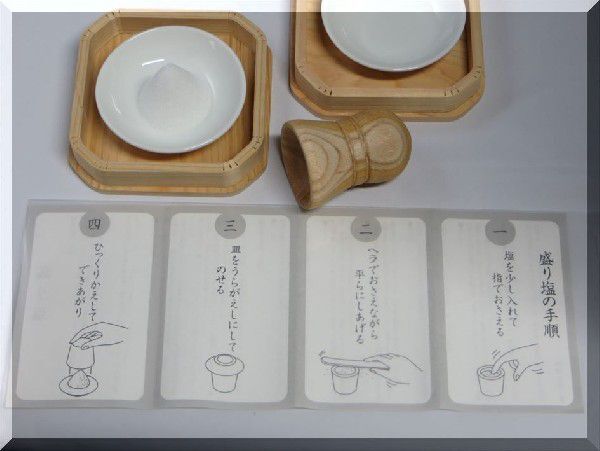 盛り塩の手順
一
塩を少し入れて
指でおさえる
二
ヘラでおさえながら
平らにしあげる
三
皿をうらがえしにして
のせる
四
ひっくりかえして
できあがり